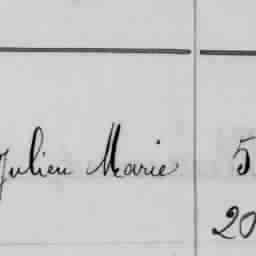 Julien Marie 5
20